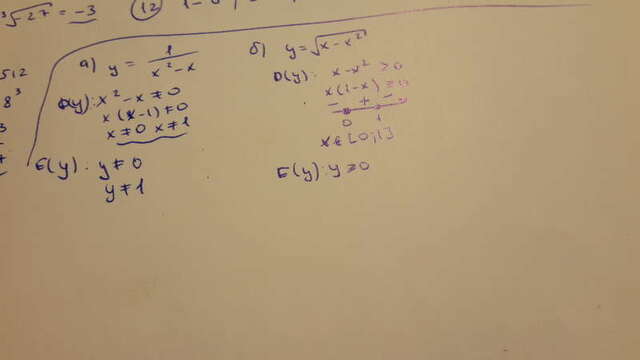 512
8³
³√-27 = -3
(12)
a) y = 1/(x² - x)
D(y): x² - x ≠ 0
x(x-1) ≠ 0
x ≠ 0 x ≠ 1
E(y): y ≠ 0
y ≠ 1
б) y = √(x - x²)
D(y): x - x² ≥ 0
x(1-x) ≥ 0
- + -
0 1
x ∈ [0;1]
E(y): y ≥ 0